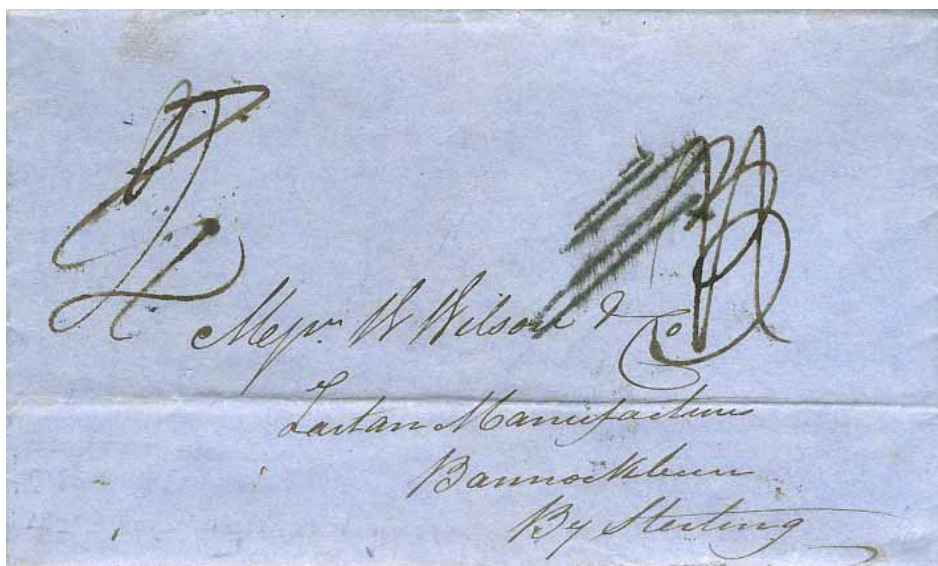 Messrs. W Wilson & Co
Tartan Manufacturers
Bannockburn
By Sterling